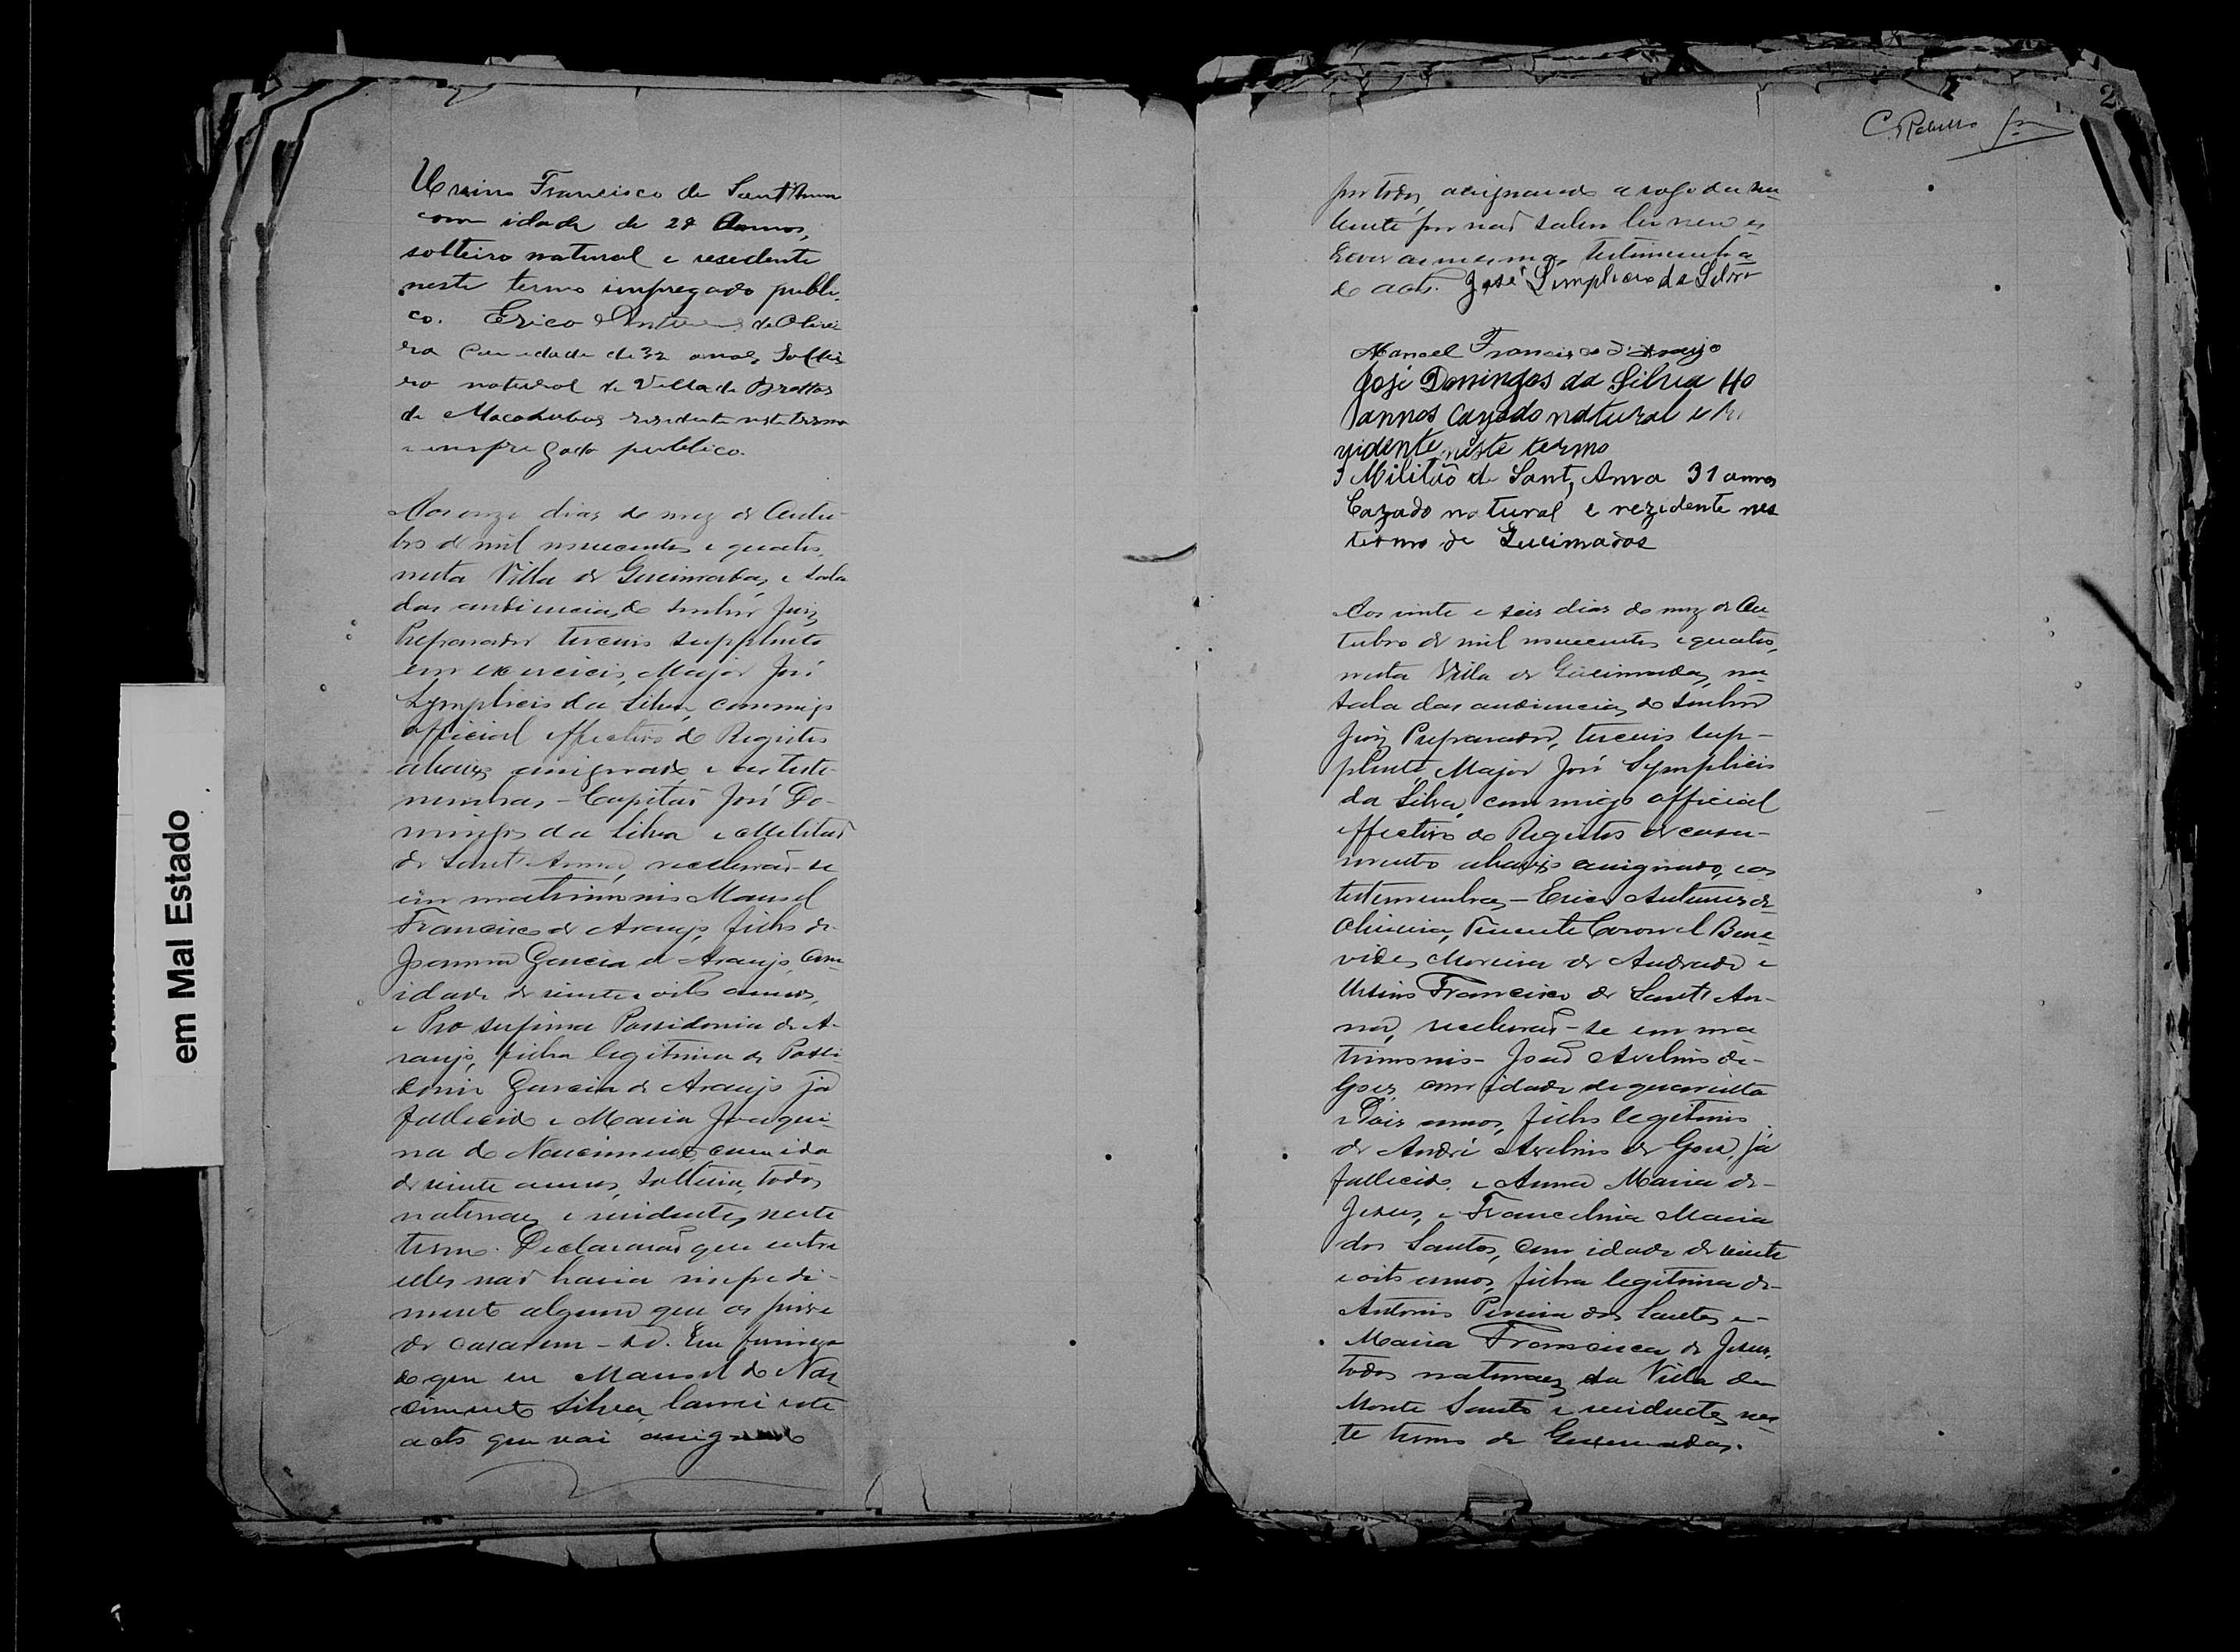 Ursino Francisco de Sant'Anna
com idade de 28 Annos,
solteiro natural e resedente
neste termo impregado publi-
co. Erico Antunes de Olivei
ra com edade de 32 anos, Soltei
ro natural de Villa de Brottas
de Macahubas residente neste termo
e empregado publico.
Aos onze dias do mez de Outu-
bro de mil novecentos e quatro,
nesta Villa de Queimadas, e sala
das audiencias do senhor Juiz
Preparador terceiro supplente
em exercicio, Major José
Symplicio da Silva, commigo
official effectivo do Registro
abaixo assignado e as teste-
munhas - Capitaõ José Do-
mingos da Silva e Militaõ
de Sant'Anna, receberaõ-se
em matrimonio Manoel
Francisco de Araujo, filho de
Joanna Garcia de Araujo, com
idade de vinte e oito annos,
e Pro sufina Possidonia de A-
raujo, filha legitima de Possi-
donio Garcia de Araujo já
fallecido e Maria Joaqui-
na do Nascimento, com ida
de vinte annos, solteira, todos
naturaes e residentes neste
termo. Declararaõ que entre
elles naõ havia impedi-
mento algum que os prive
de casarem-se. Em firmeza
do que eu Manoel do Nas
cimento Silva, lavrei este
acto que vai assignado
2
C. Rabello
por todos, assignando a rogo da nu-
bente por naõ saber ler nem es
crever a mesma, testimunha
do acto. José Simplicio da Silva
Manoel Francisco d'Araujo
José Domingos da Silva 40
annos cazado natural e re
zidente neste termo
Militaõ de Sant'Anna 31 annos
Cazado natural e rezidente nes
termo de Queimadas
Aos vinte e seis dias do mez de Ou
tubro de mil novecentos e quatro,
nesta Villa de Queimadas, na
sala das audiencias do senhor
Juiz Preparador, terceiro sup-
plente, Major José Symplicio
da Silva, commigo official
effectivo do Registro de casa-
mento abaixo assignado, e as
testemunhas - Erico Antunes de
Oliveira, Tenente Coronel Bene
vides Moreira de Andrade e
Ursino Francisco de Sant'An-
na, receberaõ-se em ma
trimonio - Joaõ Avelino de
Goes, com idade de quarenta
e Dois annos, filho legitimo
de André Avelino de Goes, já
fallecido, e Anna Maria de
Jesus, e Francelina Maria
dos Santos, com idade de vinte
e oito annos, filha legitima de
Antonio Pereira dos Santos e
Maria Francisca de Jesus,
todos naturaes da Villa de
Monte Santo e residentes nes
te termo de Queimadas.
em Mal Estado